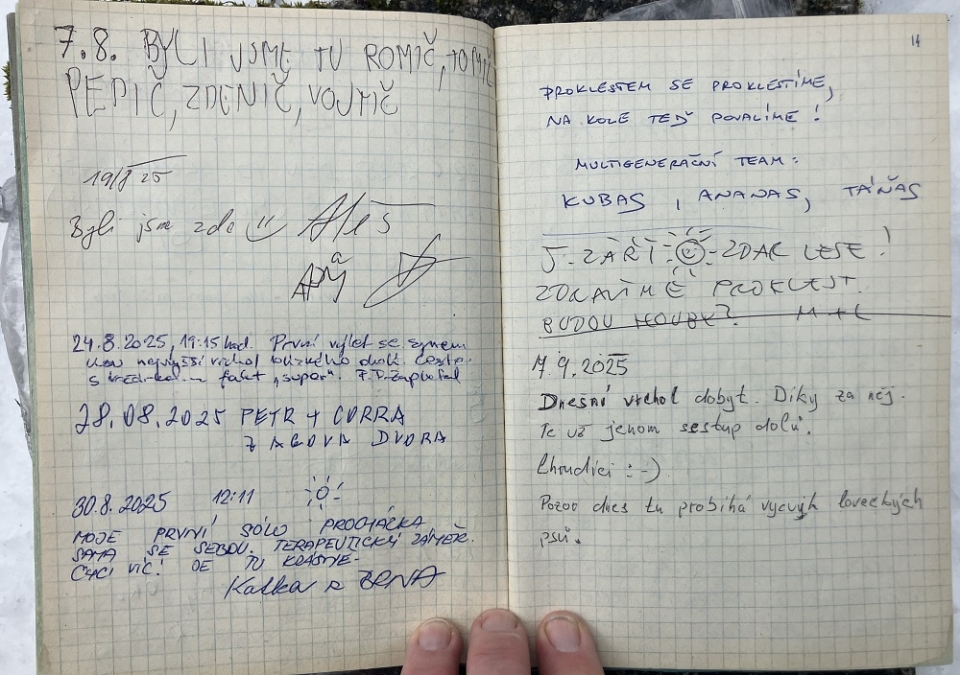 7.8. BYLI JSME TU ROMIČ, TOMIČ
PEPIČ, ZDENIČ, VOJMIČ
19/8 25
Byli jsme zde Aleš
a
24.8.2025, 19:15 hod. První výlet se synem
nejvyšší vrchol blízkého okolí. Cesta
s fakt „super".
28.08.2025 PETR + CORRA
Z AGOVA DVORA
30.8.2025 12:11
MOJE PRVNÍ SÓLO PROCHÁZKA
SAMA SE SEBOU. TERAPEUTICKÝ ZÁMĚR.
CHCI VÍC! JE TU KRÁSNĚ-
Katka z BRNA
14
PROKLESTEM SE PROKLESTÍME,
NA KOLE TEĎ POVALÍME!
MULTIGENERAČNÍ TEAM:
KUBAS, ANANAS, TÁŇAS
5. ZÁŘÍ - ZDAR LESE!
ZDRAVÍME PROKLEST.
BUDOU HOUBY? M + L
7.9.2025
Dnešní vrchol dobyt. Díky za něj.
Te už jenom sestup dolů.
Chrudíci :-)
Pozor dnes tu probíhá výcvyk loveckých
psů.